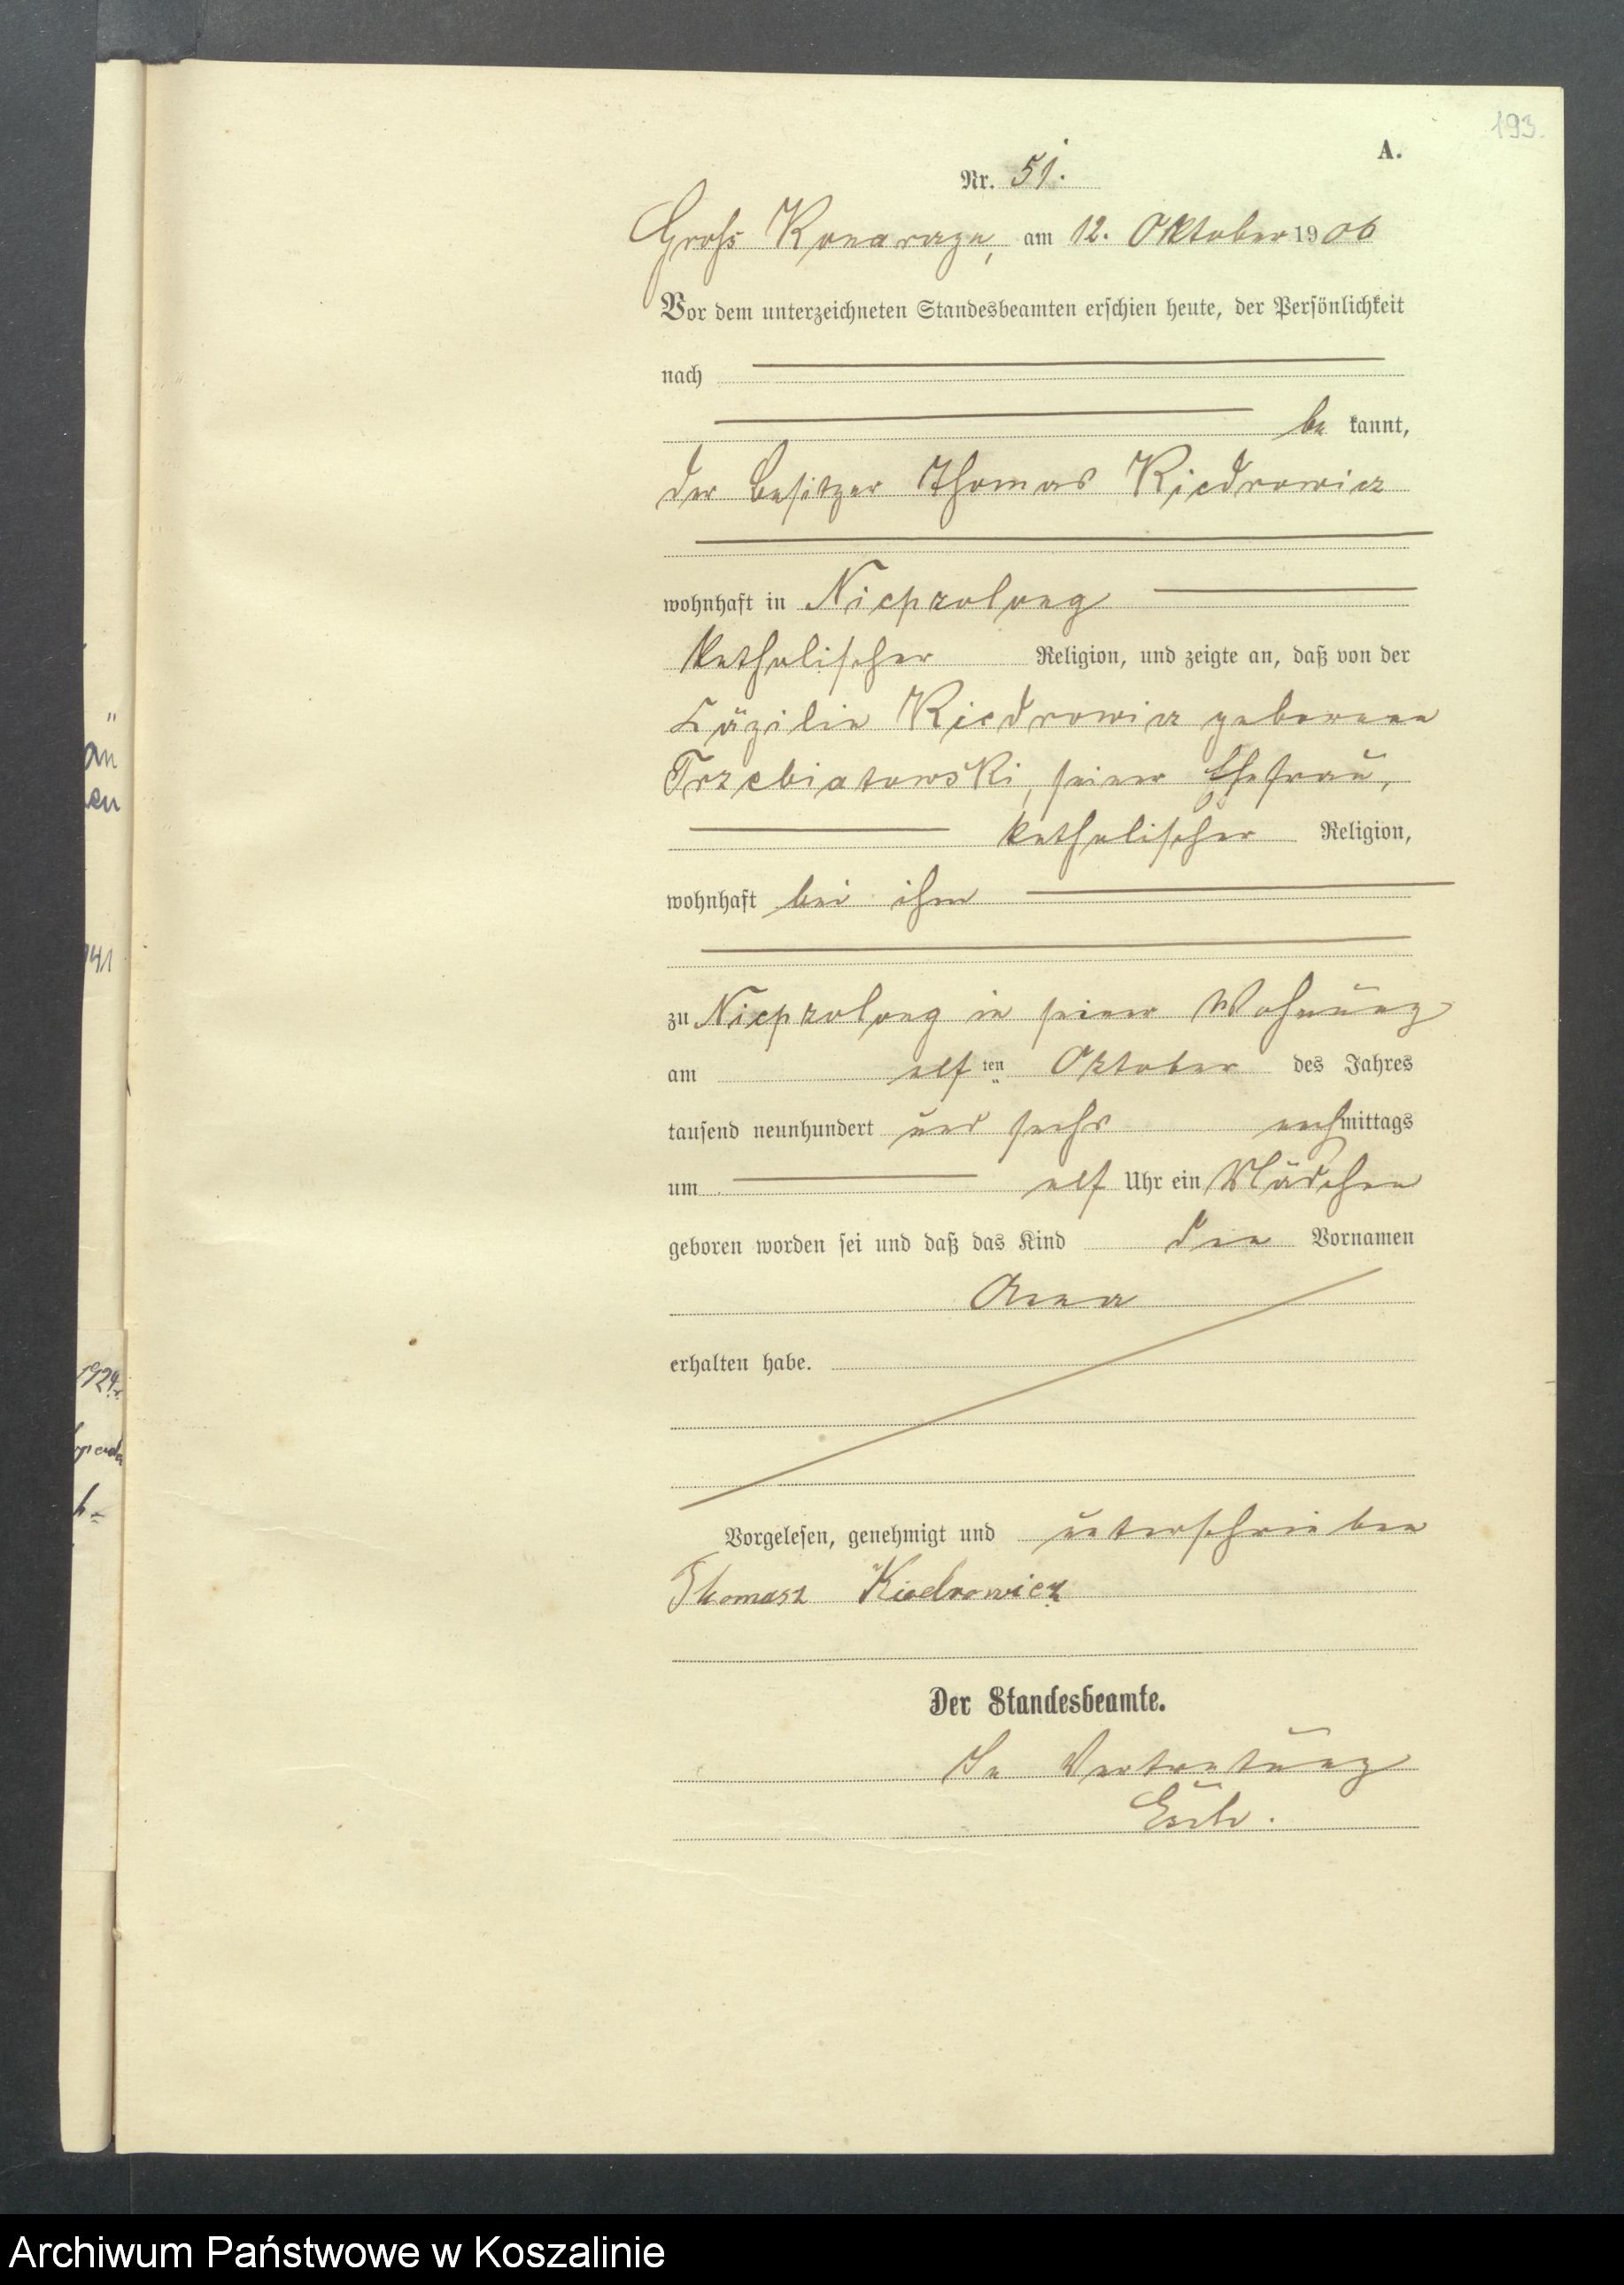 193.
A.
Nr. 51.
Gross Konarzyn, am 12. Oktober 1906
Vor dem unterzeichneten Standesbeamten erschien heute, der Persönlichkeit
nach
be kannt,
der Besitzer Thomas Kiedrowicz
wohnhaft in Niepzolong
katholischer Religion, und zeigte an, daß von der
Cäzilie Kiedrowicz geborenen
Trzebiatowski, seiner Ehefrau,
katholischer Religion,
wohnhaft bei ihm
zu Niepzolong in seiner Wohnung
am elf ten Oktober des Jahres
tausend neunhundert und sechs nachmittags
um elf Uhr ein Mädchen
geboren worden sei und daß das Kind den Vornamen
Anna
erhalten habe.
Vorgelesen, genehmigt und unterschrieben
Thomasz Kiedrowicz
Der Standesbeamte.
In Vertretung
an
en
41
1924
Archiwum Państwowe w Koszalinie